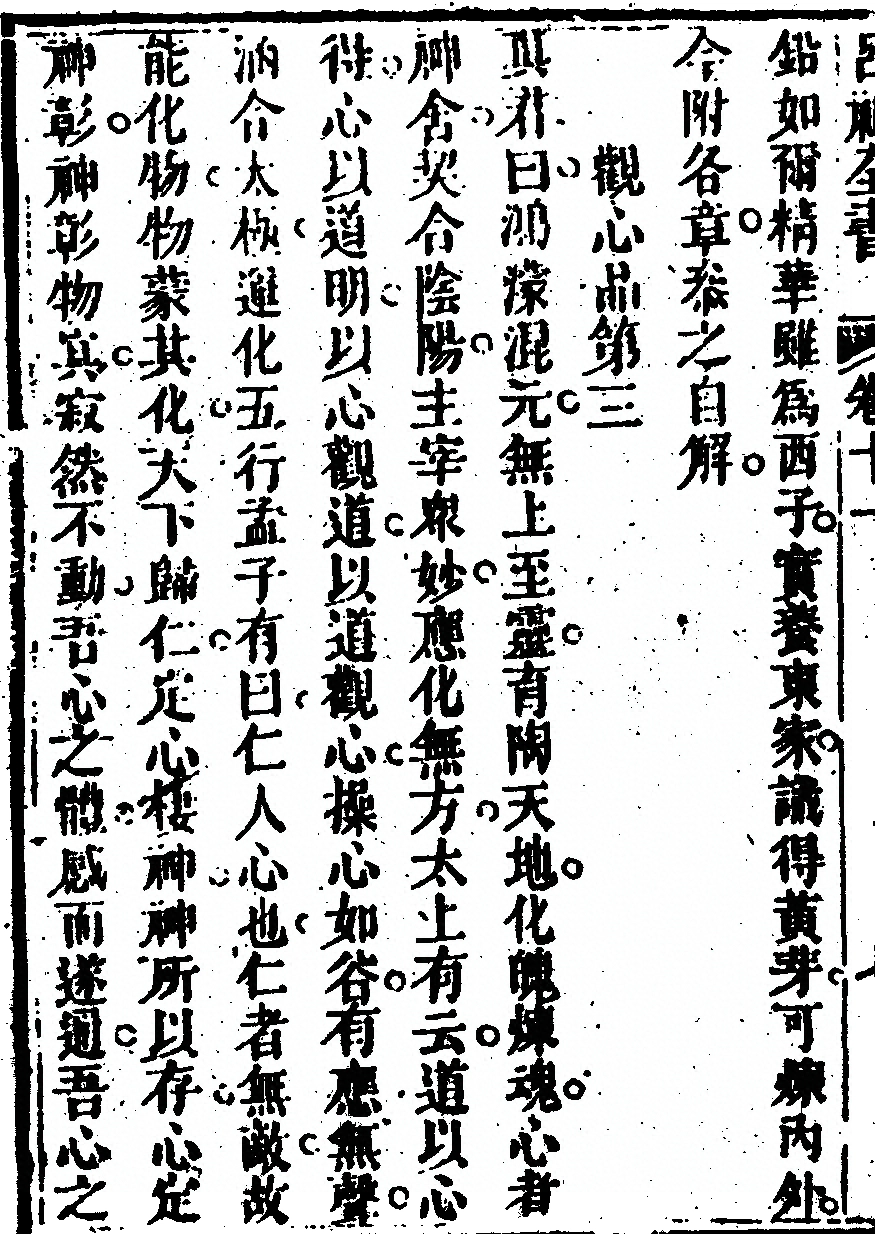 呂祖全書 卷十一
鉛如爾精華雖為西子實養東家識得黃芽可煉內外
今附各章叅之自解
觀心品第三
真君曰鴻濛混元無上至靈育陶天地化魄煉魂心者
神舍契合陰陽主宰眾妙應化無方太上有云道以心
得心以道明以心觀道以道觀心操心如谷有應無聲
涵合太極運化五行孟子有曰仁人心也仁者無敵故
能化物物蒙其化天下歸仁定心棲神神所以存心定
神彰神彰物冥寂然不動吾心之體感而遂通吾心之